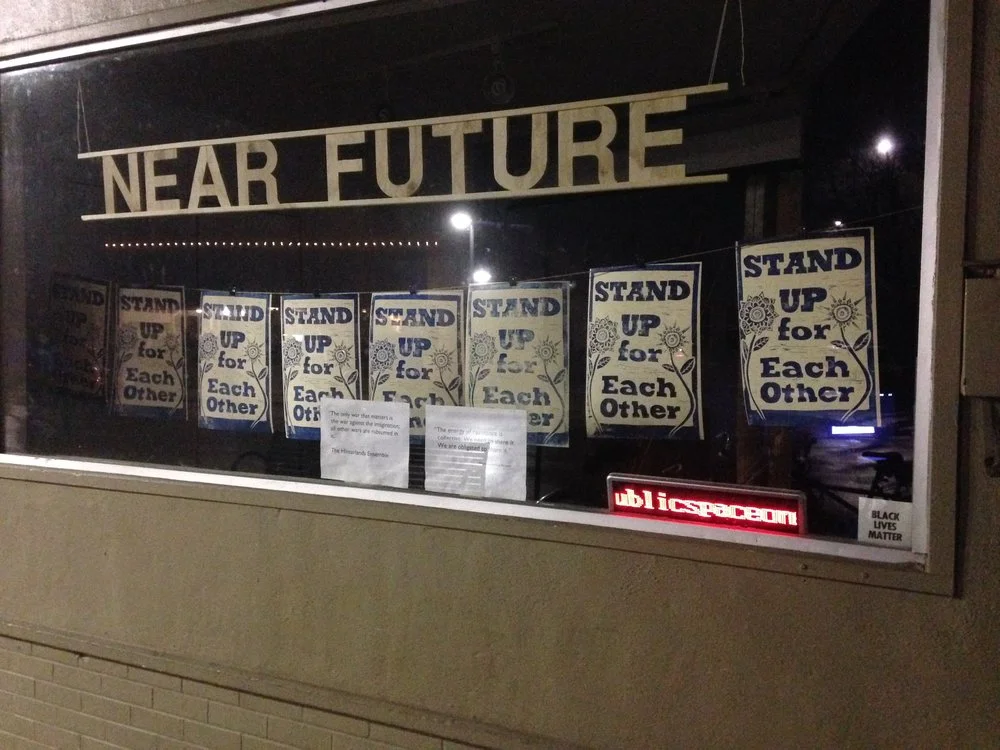 NEAR FUTURE
STAND
STAND
UP
for
Each
Other
STAND
UP
for
Each
Other
STAND
UP
for
Each
Oth
STAND
UP
for
Each
STAND
UP
for
Each
er
STAND
UP
for
Each
Other
STAND
UP
for
Each
Other
"The only war that matters is
the war against the imagination;
all other wars are subsumed in
it."
The Hinterlands Ensemble
"The energy of is
collective. We to share it.
We are obligated to it."
ublicspaceon
BLACK
LIVES
MATTER